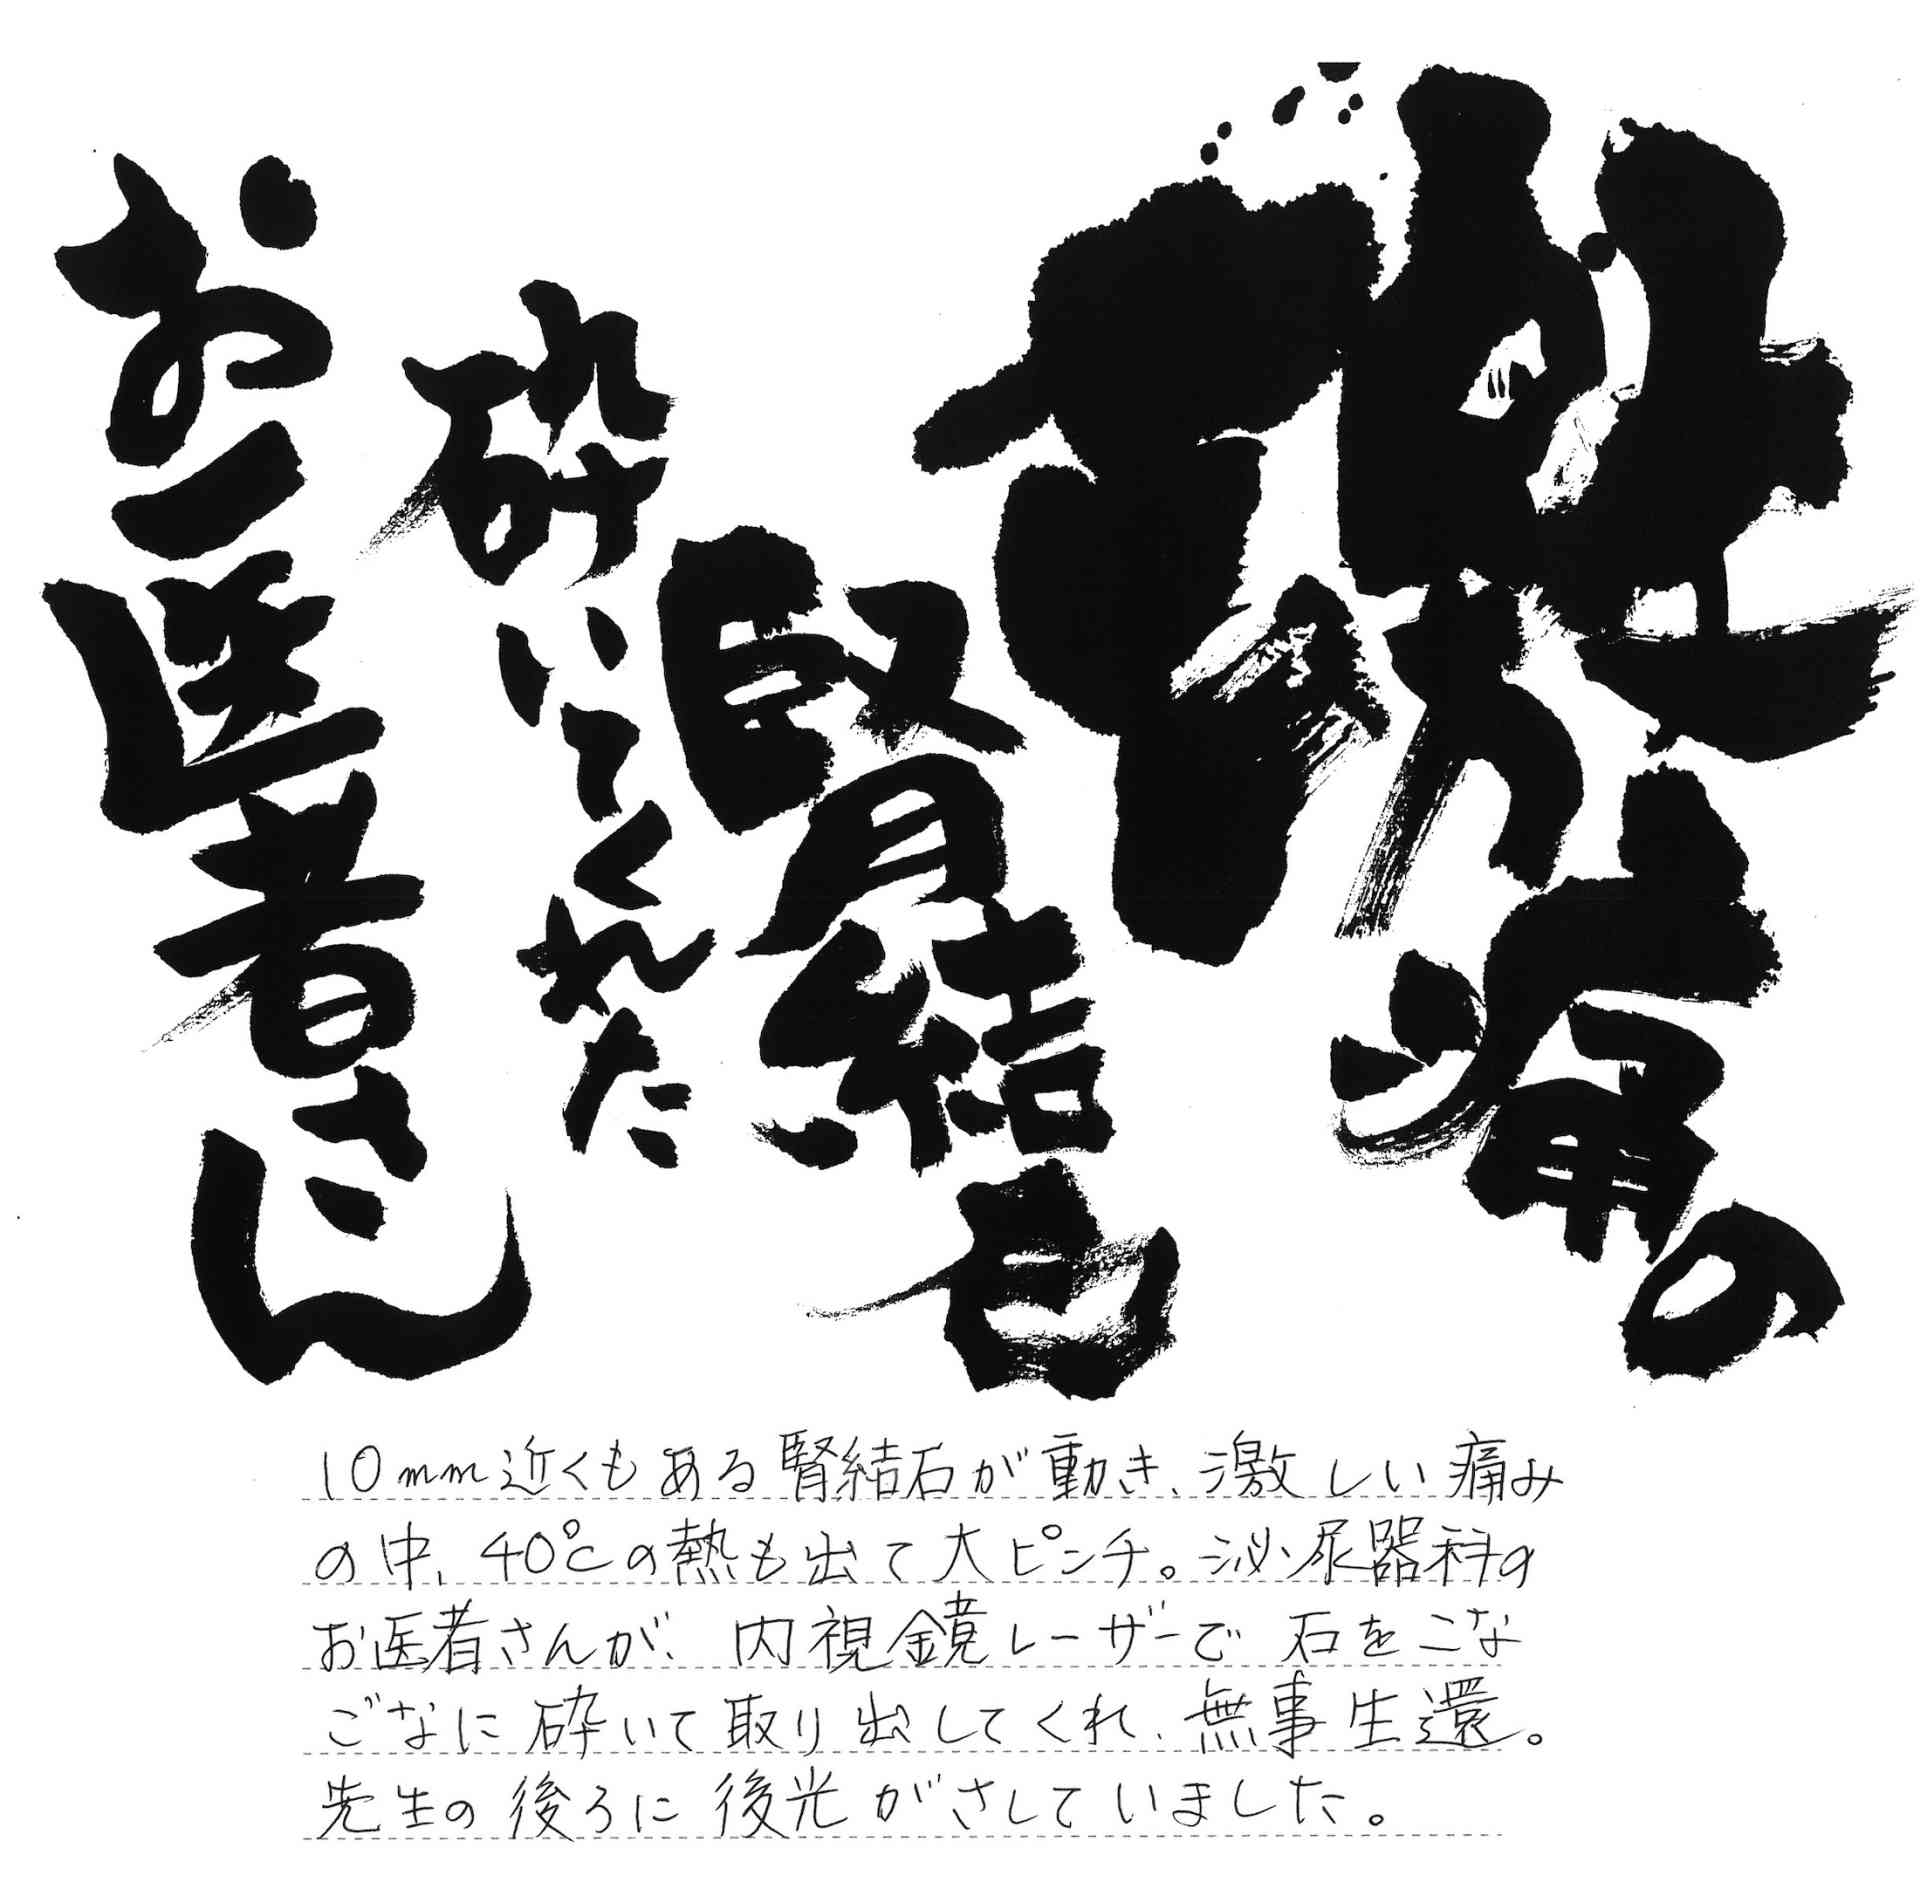 激痛の
腎結石
砕いてくれた
お医者さん
10mm近くもある腎結石が動き、激しい痛み
の中、40℃の熱も出て大ピンチ。泌尿器科の
お医者さんが、内視鏡レーザーで石をこな
ごなに砕いて取り出してくれ、無事生還。
先生の後ろに後光がさしていました。